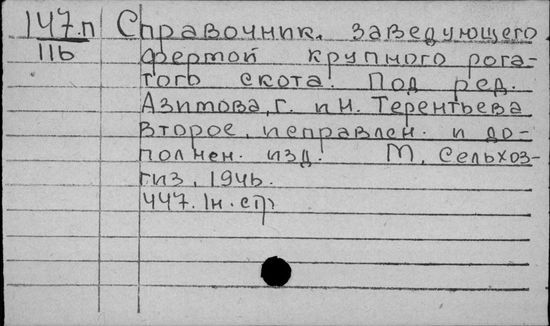 147.п Справочник. заведующего
116 фермой крупного рога-
того скота. Под ред.
Азимова, Г. и Н. Терентьева
Второе, исправлен. и до-
полнен. изд. М. Сельхоз-
гиз, 1946.
447. 1н. стр.